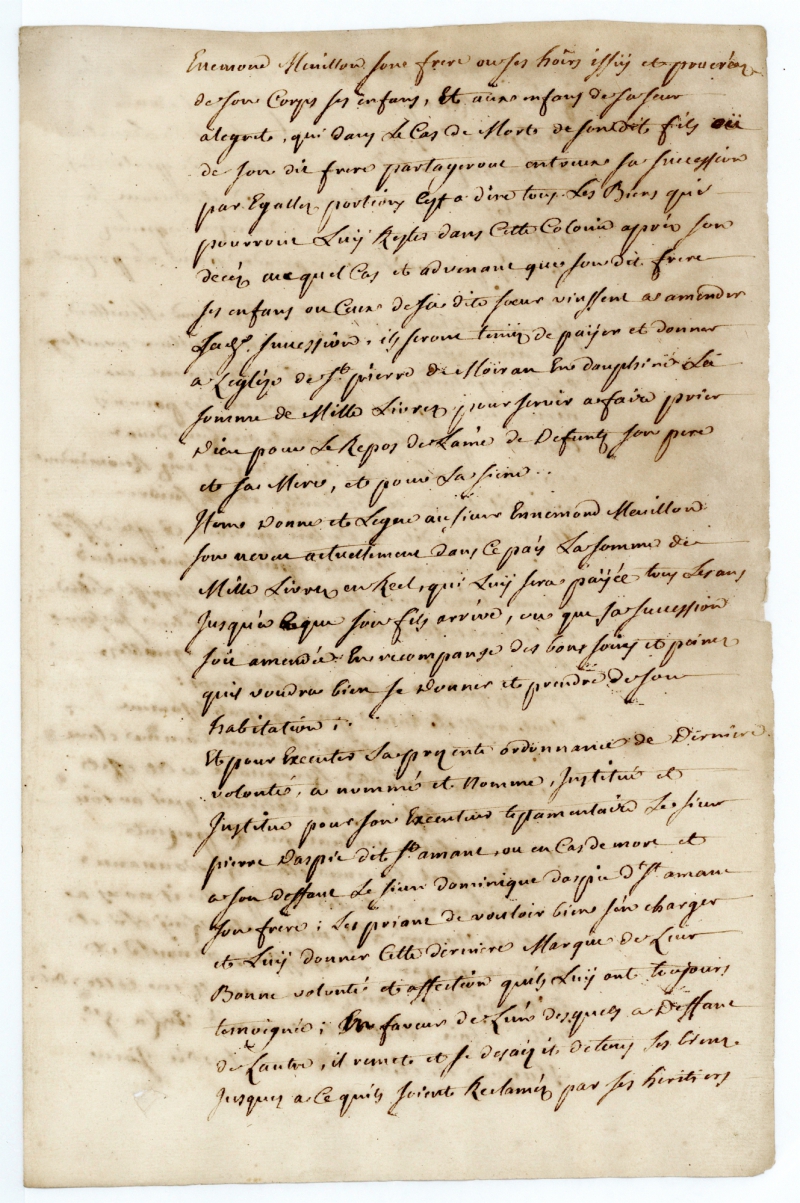 Enemond Meuillon son frere ou ses hoirs issus et procréez
de son Corps ses enfans, Et aux enfans de sa seur
alegrete, qui dans Le Cas de Morts de sondit fils ou
de son dit frere partageront entreux sa succession
par Egalles portions C'est a dire tous Les Biens qui
pourront Luy Rester dans Cette Colonie apres son
decez auquel Cas et advenant que son dit frere
ses enfans ou Ceux de sa dite soeur vinssent a amender
Lad.e succession, ils seront tenus de païer et donner
a L'eglize de St. pierre de Moiran En dauphiné La
somme de Mille Livres pour servir a faire prier
Dieu pour Le Repos de L'ame de Defunts son pere
et sa Mere, et pour La siene ..
Item Donne et Legue au sieur Ennemond Meuillon
son neveu actuellement dans Ce païs La somme de
Mille Livres en Reel, qui Luy sera païée tous Les ans
Jusqu'a Ceque son fils arrive, ou que sa sucession
soit amendée En recompanse des bons soins et peines
quil voudra bien se Donner et prendre de son
habitation ;.
Et pour Executer La presente ordonnance de Derniere
volonté, a nommé et Nomme, Institué et
Institue pour son Executeur testamentaire Le sieur
pierre Daspie dit St. amant, ou en Cas de mort et
a son deffaut Le sieur dominique daspie dt. St. amant
son frere ; Les priant de vouloir bien s'en charger
et Luy donner Cette derniere Marque de Leur
Bonne volonté et affection quils Luy ont toujours
temoignée ; En faveur de L'un desquels a Deffaut
de L'autre, il remet et se desaizit de tous ses biens
Jusques a Ce quils soient Reclamés par ses heritiers